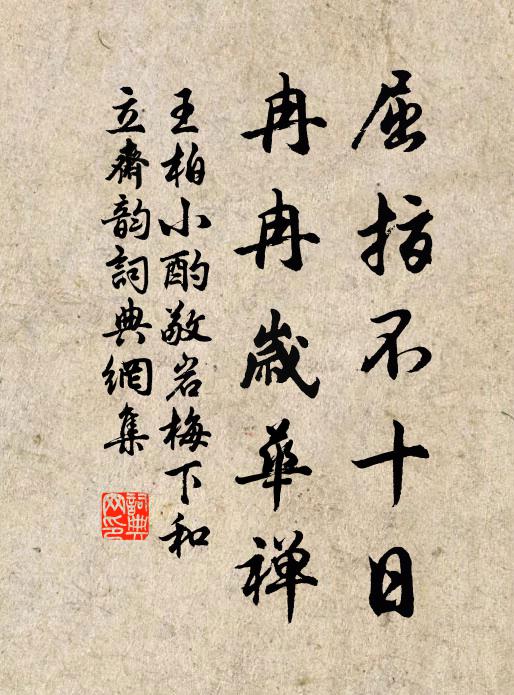 屈指不十日
冉冉歲華禅
王柏小酌敬岩梅下和
立齋韵詞典網集
詞典網印